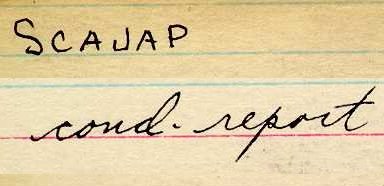 SCAJAP
cond. report